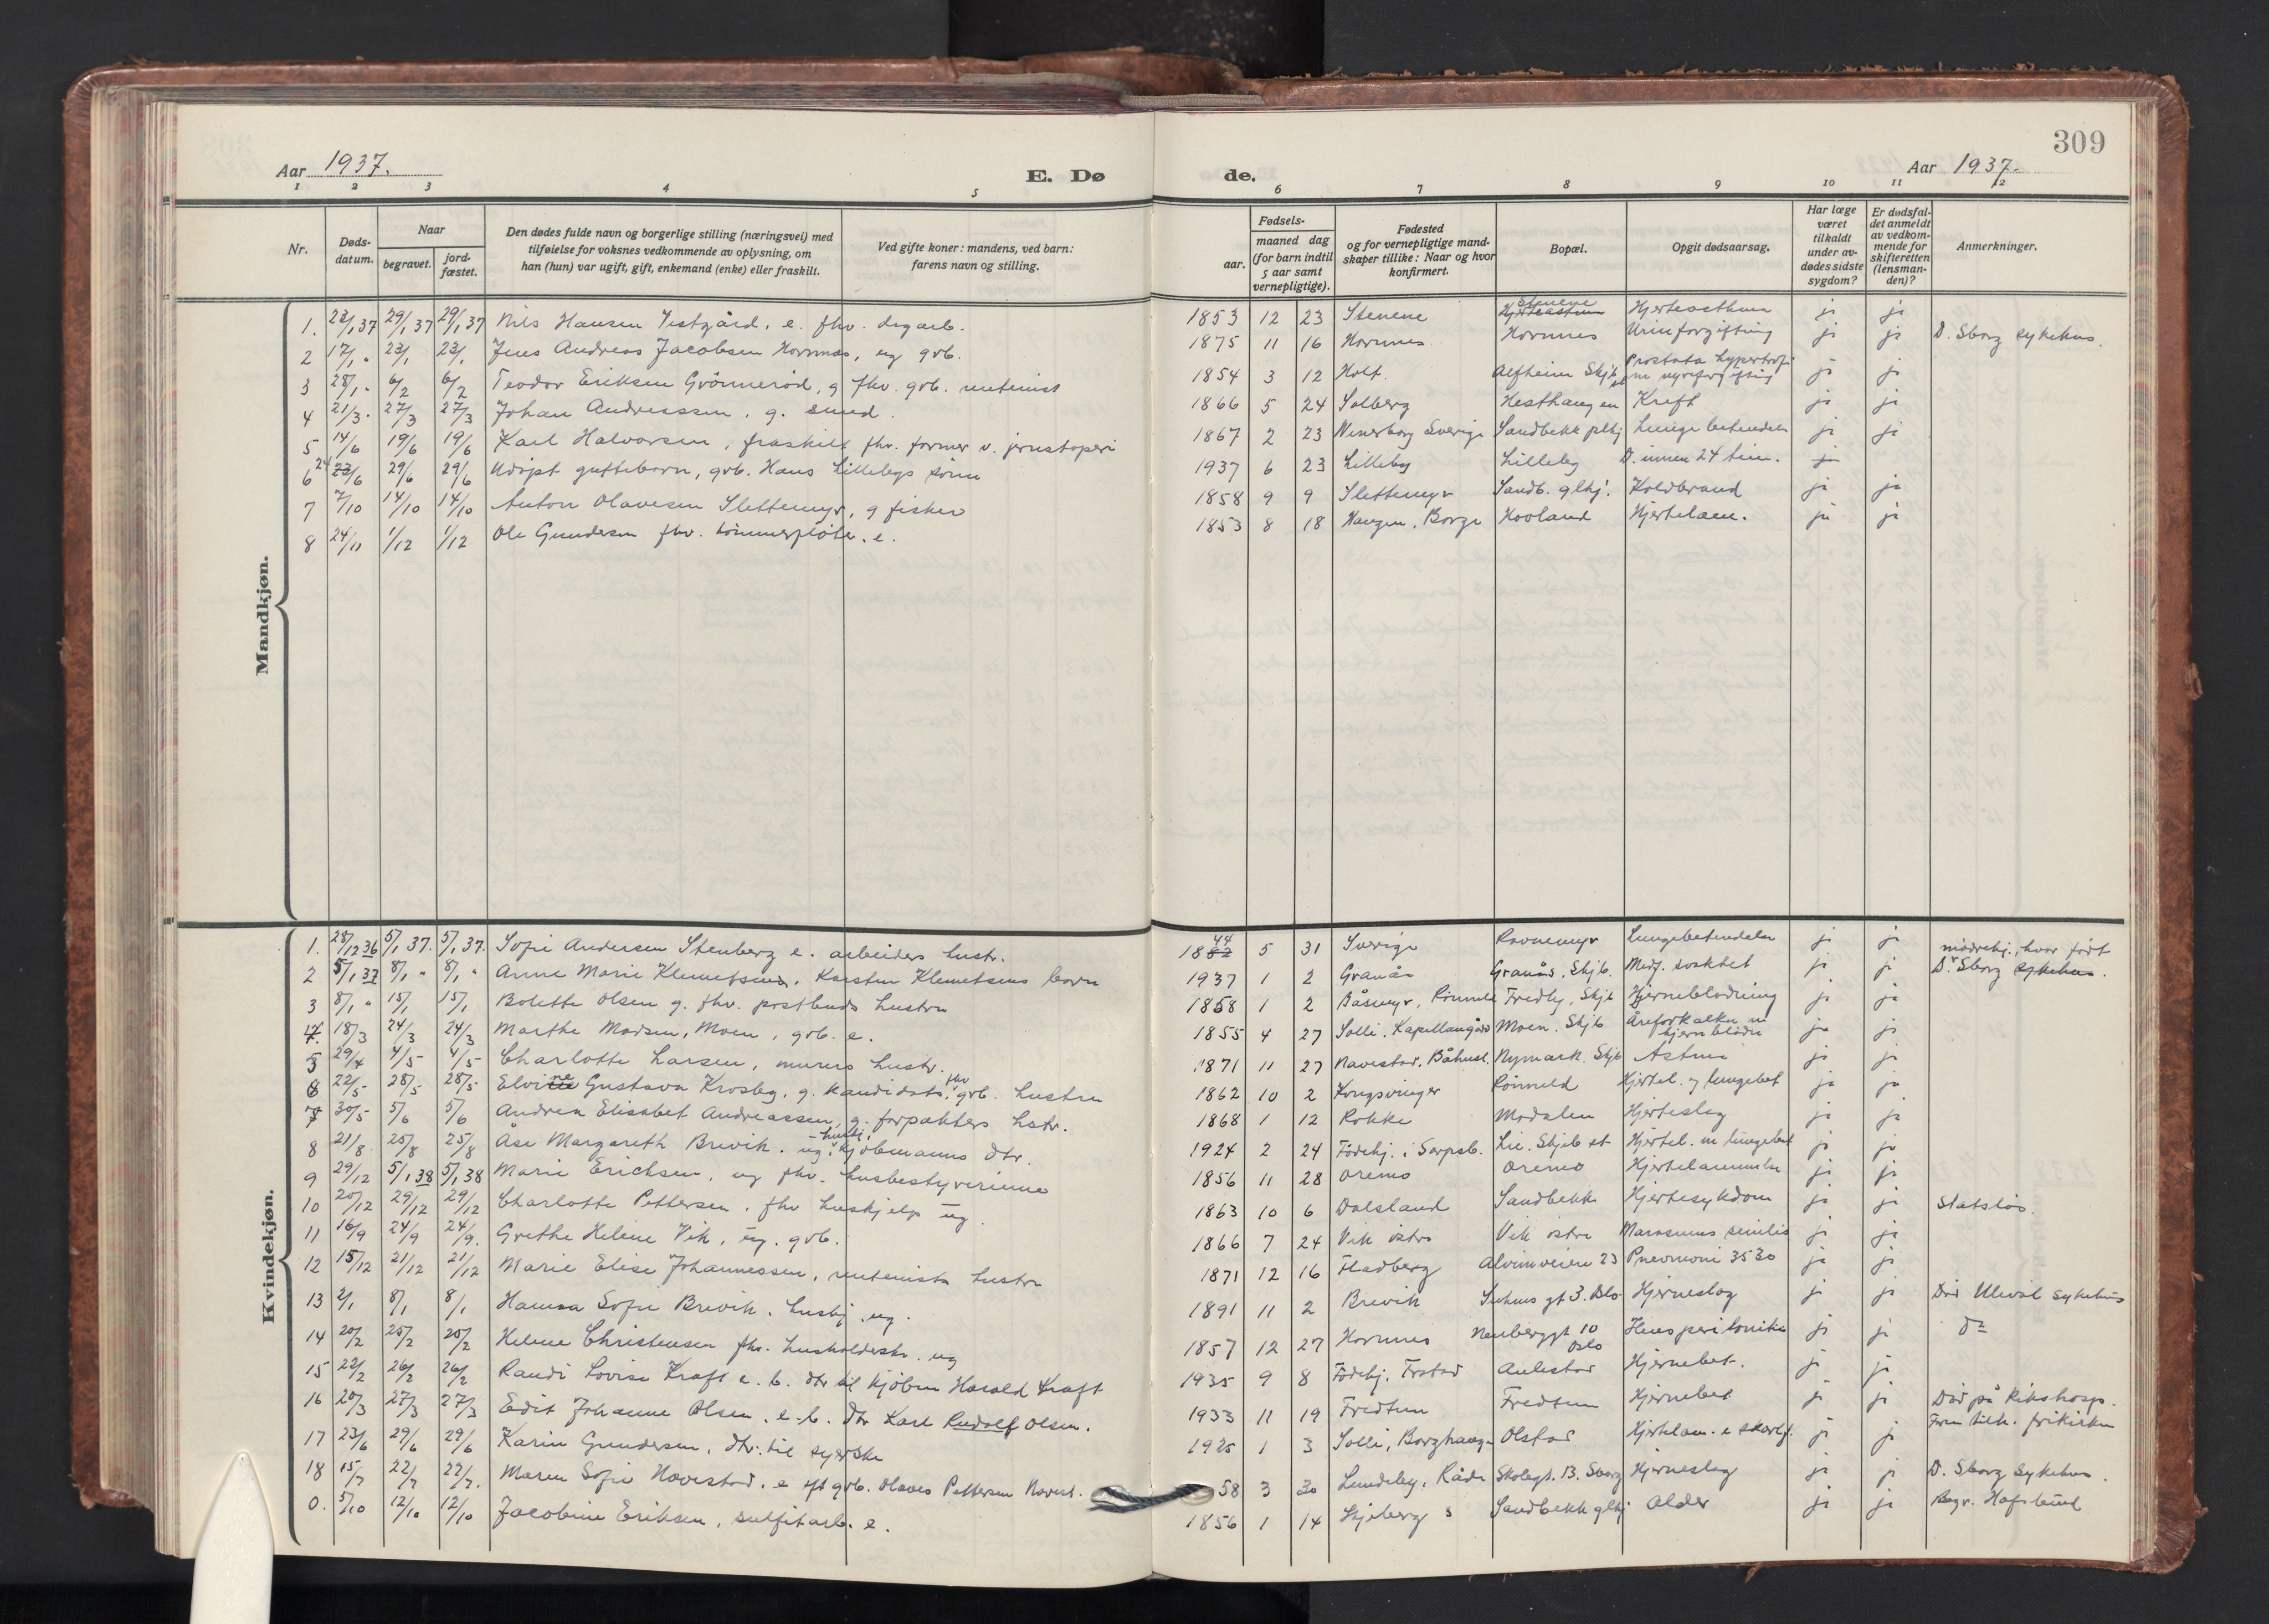 309
Aar 1937.
E. Dø de.
Aar 1937.
1 2 3 4 5 6 7 8 9 10 11 12
Nr.
Døds-datum.
Naar
begravet.
jord-fæstet.
Den dødes fulde navn og borgerlige stilling (næringsvei) med
tilføielse for voksnes vedkommende av oplysning, om
han (hun) var ugift, gift, enkemand (enke) eller fraskilt.
Ved gifte koner: mandens, ved barn:
farens navn og stilling.
Fødsels-
aar.
maaned dag
(for barn indtil
5 aar samt
vernepligtige).
Fødested
og for vernepligtige mand-
skaper tillike: Naar og hvor
konfirmert.
Bopæl.
Opgit dødsaarsag.
Har læge
været
tilkaldt
under av-
dødes sidste
sygdom?
Er dødsfal-
det anmeldt
av vedkom-
mende for
skifteretten
(lensman-
den)?
Anmerkninger.
Mandkjøn.
1. 23/1 37 29/1 37 29/1 37 Nils Hansen Vestgård, e. fhv. dagarb. 1853 12 23 Stenene Stenene Hjerteasthma ja ja
2 17/1 " 23/1 23/1 Jens Andreas Jacobsen Hornnes, ug gvb. 1875 11 16 Hornnes Hornnes Urinforgiftning ja ja D. Sborg sykehus.
3 28/1 " 6/2 6/2 Teodor Eriksen Grönneröd, g fhv. gvb. rentenist 1854 3 12 Holt Alfheim Skjb. st Prostata hypertrofi m nyreforgiftnig ja ja
4 21/3 27/3 27/3 Johan Andreassen, g. smed. 1866 5 24 Solberg Hesthaugen Kreft ja ja
5 14/6 19/6 19/6 Karl Halvorsen, fraskilt fhv. former v. jernstøperi 1867 2 23 Wenerborg Sverige Sandbekk plhj Lungebetendelse ja ja
6 24/6 29/6 29/6 Udöpt guttebarn, gvb. Hans Lillebys sönn 1937 6 23 Lilleby Lilleby D. innen 24 tim. ja
7 7/10 14/10 14/10 Anton Olavesen Slettemyr, g fisker 1858 9 9 Slettemyr Sandb. glhj. Koldbrand ja ja
8 24/11 1/12 1/12 Ole Gundersen fhv. tömmerfløter. e. 1853 8 18 Haugen, Borge Hovland Hjertelam. ja ja
Kvindekjøn.
1. 28/12 36 5/1 37. 5/1 37. Sofie Andersen Stenberg e. arbeiders hustr. 1844 5 31 Sverige Ravnemyr Lungebetendelse ja ja
2 5/1 37 8/1 " 8/1 " Anne Marie Klemetsen, Karsten Klemetsens barn 1937 1 2 Granås Granås, Skjb. Medf. svakhet ja ja mödrehj. hvor født D. Sborg
3 8/1 " 15/1 15/1 Bolette Olsen g. fhv. postbuds hustru 1858 1 2 Båsmyr, Rönneld Fredly, Skjb Hjerneblödning ja ja
4. 18/3 24/3 24/3 Marthe Madsen, Moen, gvb. e. 1855 4 27 Solli. Kapellangård Moen. Skjb Åreforkalkn m hjerneblödn ja ja
5 29/4 4/5 4/5 Charlotte Larsen, murers hustr. 1871 11 27 Navestad, Båhusl. Nymark. Skjb Astma ja ja
6 22/5 28/5 28/5 Elvine Gustava Krosby, g. kandidats, fhv gvb. hustru 1862 10 2 Kongsvinger Rönneld Hjertel. og lungebet ja ja
7 30/5 5/6 5/6 Andrea Elisabet Andreassen, g. forpakters hstr. 1868 1 12 Rokke Modalen Hjerteslag ja ja
8 21/8 25/8 25/8 Åse Margareth Brevik. ug. kjöbmanns dtr. 1924 2 24 Födehj. i Sarpsb. Lie. Skjeb st Hjertel. m lungebet ja ja
9 29/12 5/1 38 5/1 38 Marie Erichsen, ug fhv. husbestyrerinne 1856 11 28 Oremo Oremo Hjertelammelse ja ja
10 20/12 29/12 29/12 Charlotte Pettersen, fhv huskjelp ug. 1863 10 6 Dalsland Sandbekk Hjertesykdom ja ja Statslös.
11 16/9 24/9 24/9. Grethe Helene Vik, ug. gvb. 1866 7 24 Vik östre Vik östre Marasmus senilis ja ja
12 15/12 21/12 21/12 Marie Elise Johannessen, rentenists hustru 1871 12 16 Hadberg Alvimveien 23 Pneumoni 3530 ja ja
13 2/1 8/1 8/1 Hanna Sofie Brevik. hushj. ug. 1891 11 2 Brevik Suhms gt 3. Oslo Hjerneslag ja ja Död Ullevål sykehus
14 20/2 25/2 25/2 Helene Christensen fhv. husholderske. ug 1857 12 27 Hornnes Neubergsgt 10 Oslo ja ja do
15 22/2 26/2 26/2 Randi Lovise Kraft e. b. dtr til kjöbm Harald Kraft 1935 9 8 Födehj. Frstad Aulestad Hjernebet. ja ja
16 20/3 27/3 27/3 Edit Johanne Olsen. e. b. Dtr Karl Rudolf Olsen. 1933 11 19 Fredtun Fredtun Hjernebet ja ja Död på Rikshosp.
17 23/6 29/6 29/6 Karin Gundersen, dtr. til syerske 1925 1 3 Solli, Borghaugen Olstad Hjertelam. e skarlf. ja ja tilh. frikirken
18 15/7 22/7 22/7. Maren Sofie Navestad, e eft gvb. Olaves Pettersen Navest. 58 3 30 Lundeby, Råde Skolegt. 13. Sborg Hjerneslag ja ja D. Sborg Sykehus.
0. 5/10 12/10 12/10 Jacobine Eriksen, sulfitarb. e. 1856 1 14 Skjeberg s Sandbekk glhj Alder ja ja Begr. Hafslund